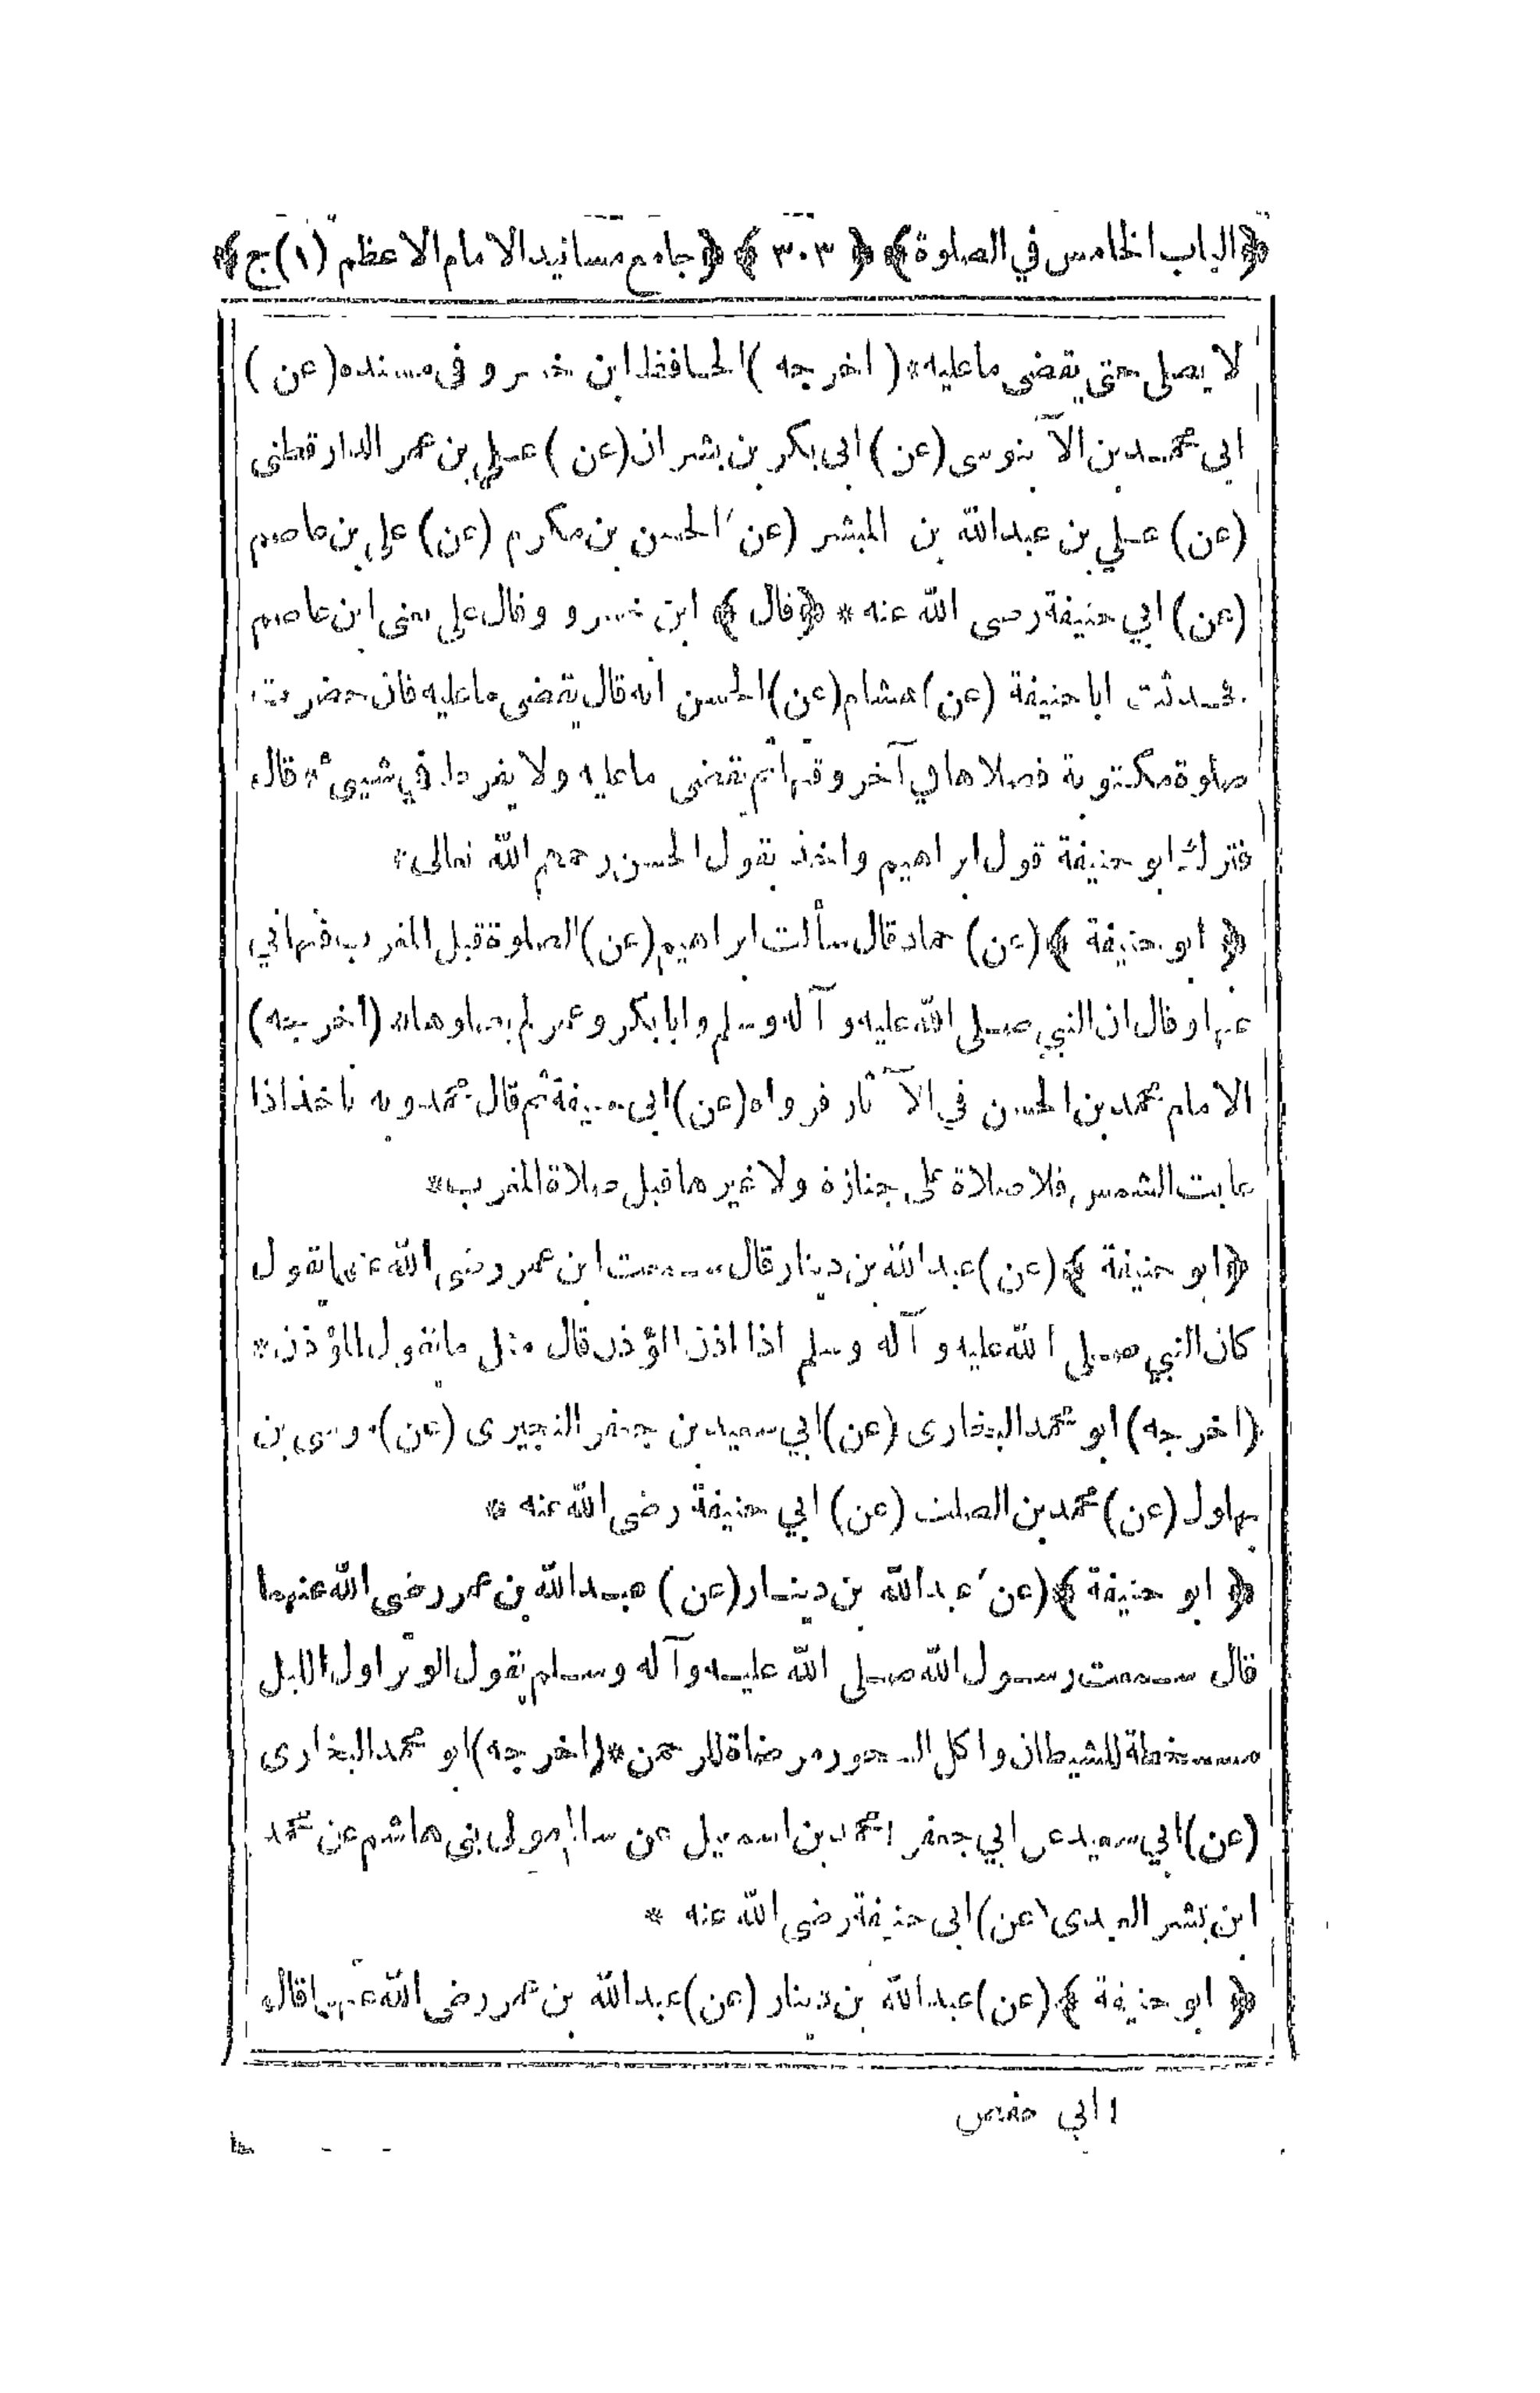 ﴿الباب الخامس في الصلوة﴾ ﴿٣٠٣﴾ ﴿جامع مسانيد الامام الاعظم (١) ج﴾
لا يصلى حتى يقضى ما عليه * (اخرجه) الحافظ ابن خسرو فى مسنده (عن)
ابى محمد بن الآبنوسى (عن) ابى بكر بن بشران (عن) على بن عمر الدارقطنى
(عن) على بن عبد الله بن المبشر (عن) الحسن بن مكرم (عن) على بن عاصم
(عن) ابي حنيفة رضى الله عنه * ﴿قال﴾ ابن خسرو وقال على يعنى ابن عاصم
فحدثت ابا حنيفة (عن) هشام (عن) الحسن انه قال يقضى ما عليه فان حضرت
صلوة مكتوبة فصلاها في آخر وقتها ثم يقضى ما عليه ولا يفرط في شيىء * قال
فترك ابو حنيفة قول ابراهيم واخذ بقول الحسن رحمهم الله تعالى *
﴿ابو حنيفة﴾ (عن) حماد قال سألت ابراهيم (عن) الصلوة قبل المغرب فنهاني
عنها وقال ان النبي صلى الله عليه وآله وسلم وابا بكر وعمر لم يصلوها * (اخرجه)
الامام محمد بن الحسن في الآثار فرواه (عن) ابى حنيفة ثم قال محمد وبه ناخذ اذا
غابت الشمس فلا صلاة على جنازة ولا غيرها قبل صلاة المغرب *
﴿ابو حنيفة﴾ (عن) عبد الله بن دينار قال سمعت ابن عمر رضى الله عنهما يقول
كان النبي صلى الله عليه وآله وسلم اذا اذن المؤذن قال مثل ما يقول المؤذن *
(اخرجه) ابو محمد البخارى (عن) ابي سعيد بن جعفر النجيرى (عن) موسى بن
بهلول (عن) محمد بن الصلت (عن) ابي حنيفة رضى الله عنه *
﴿ابو حنيفة﴾ (عن) عبد الله بن دينار (عن) عبد الله بن عمر رضى الله عنهما
قال سمعت رسول الله صلى الله عليه وآله وسلم يقول الوتر اول الليل
مسخطة للشيطان واكل السحور مرضاة للرحمن * (اخرجه) ابو محمد البخارى
(عن) ابي سعيد عن ابي جعفر ١ محمد بن اسمعيل عن سالم مولى بنى هاشم عن محمد
ابن بشر العبدى (عن) ابى حنيفة رضى الله عنه *
﴿ابو حنيفة﴾ (عن) عبد الله بن دينار (عن) عبد الله بن عمر رضى الله عنهما قال
١ ابي حفص